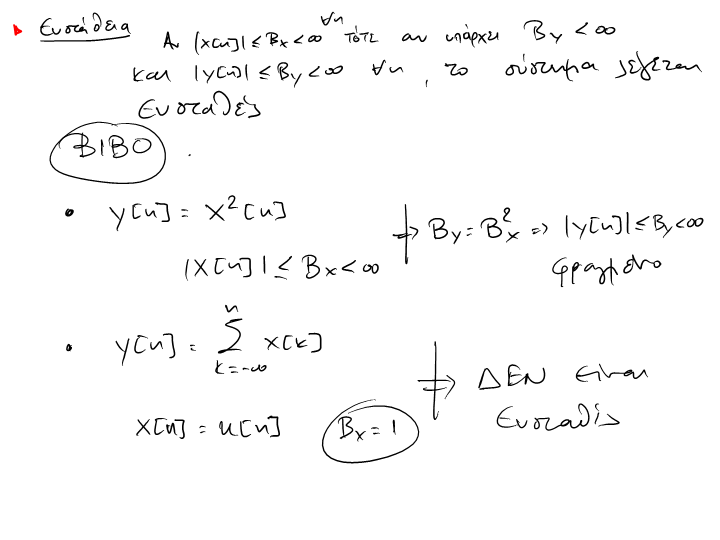 Ευστάθεια Αν |x[n]| ≤ Bx < ∞ ∀n τότε αν υπάρχει By < ∞
και |y[n]| ≤ By < ∞ ∀n, το σύστημα λέγεται
Ευσταθές
BIBO
• y[n] = x²[n] ⇒ By = Bx² ⇒ |y[n]| ≤ By < ∞
|x[n]| ≤ Bx < ∞ φραγμένο
• y[n] = Σ_{k=-∞}^{n} x[k] ⇒ ΔΕΝ είναι
x[n] = u[n] Bx = 1 Ευσταθές